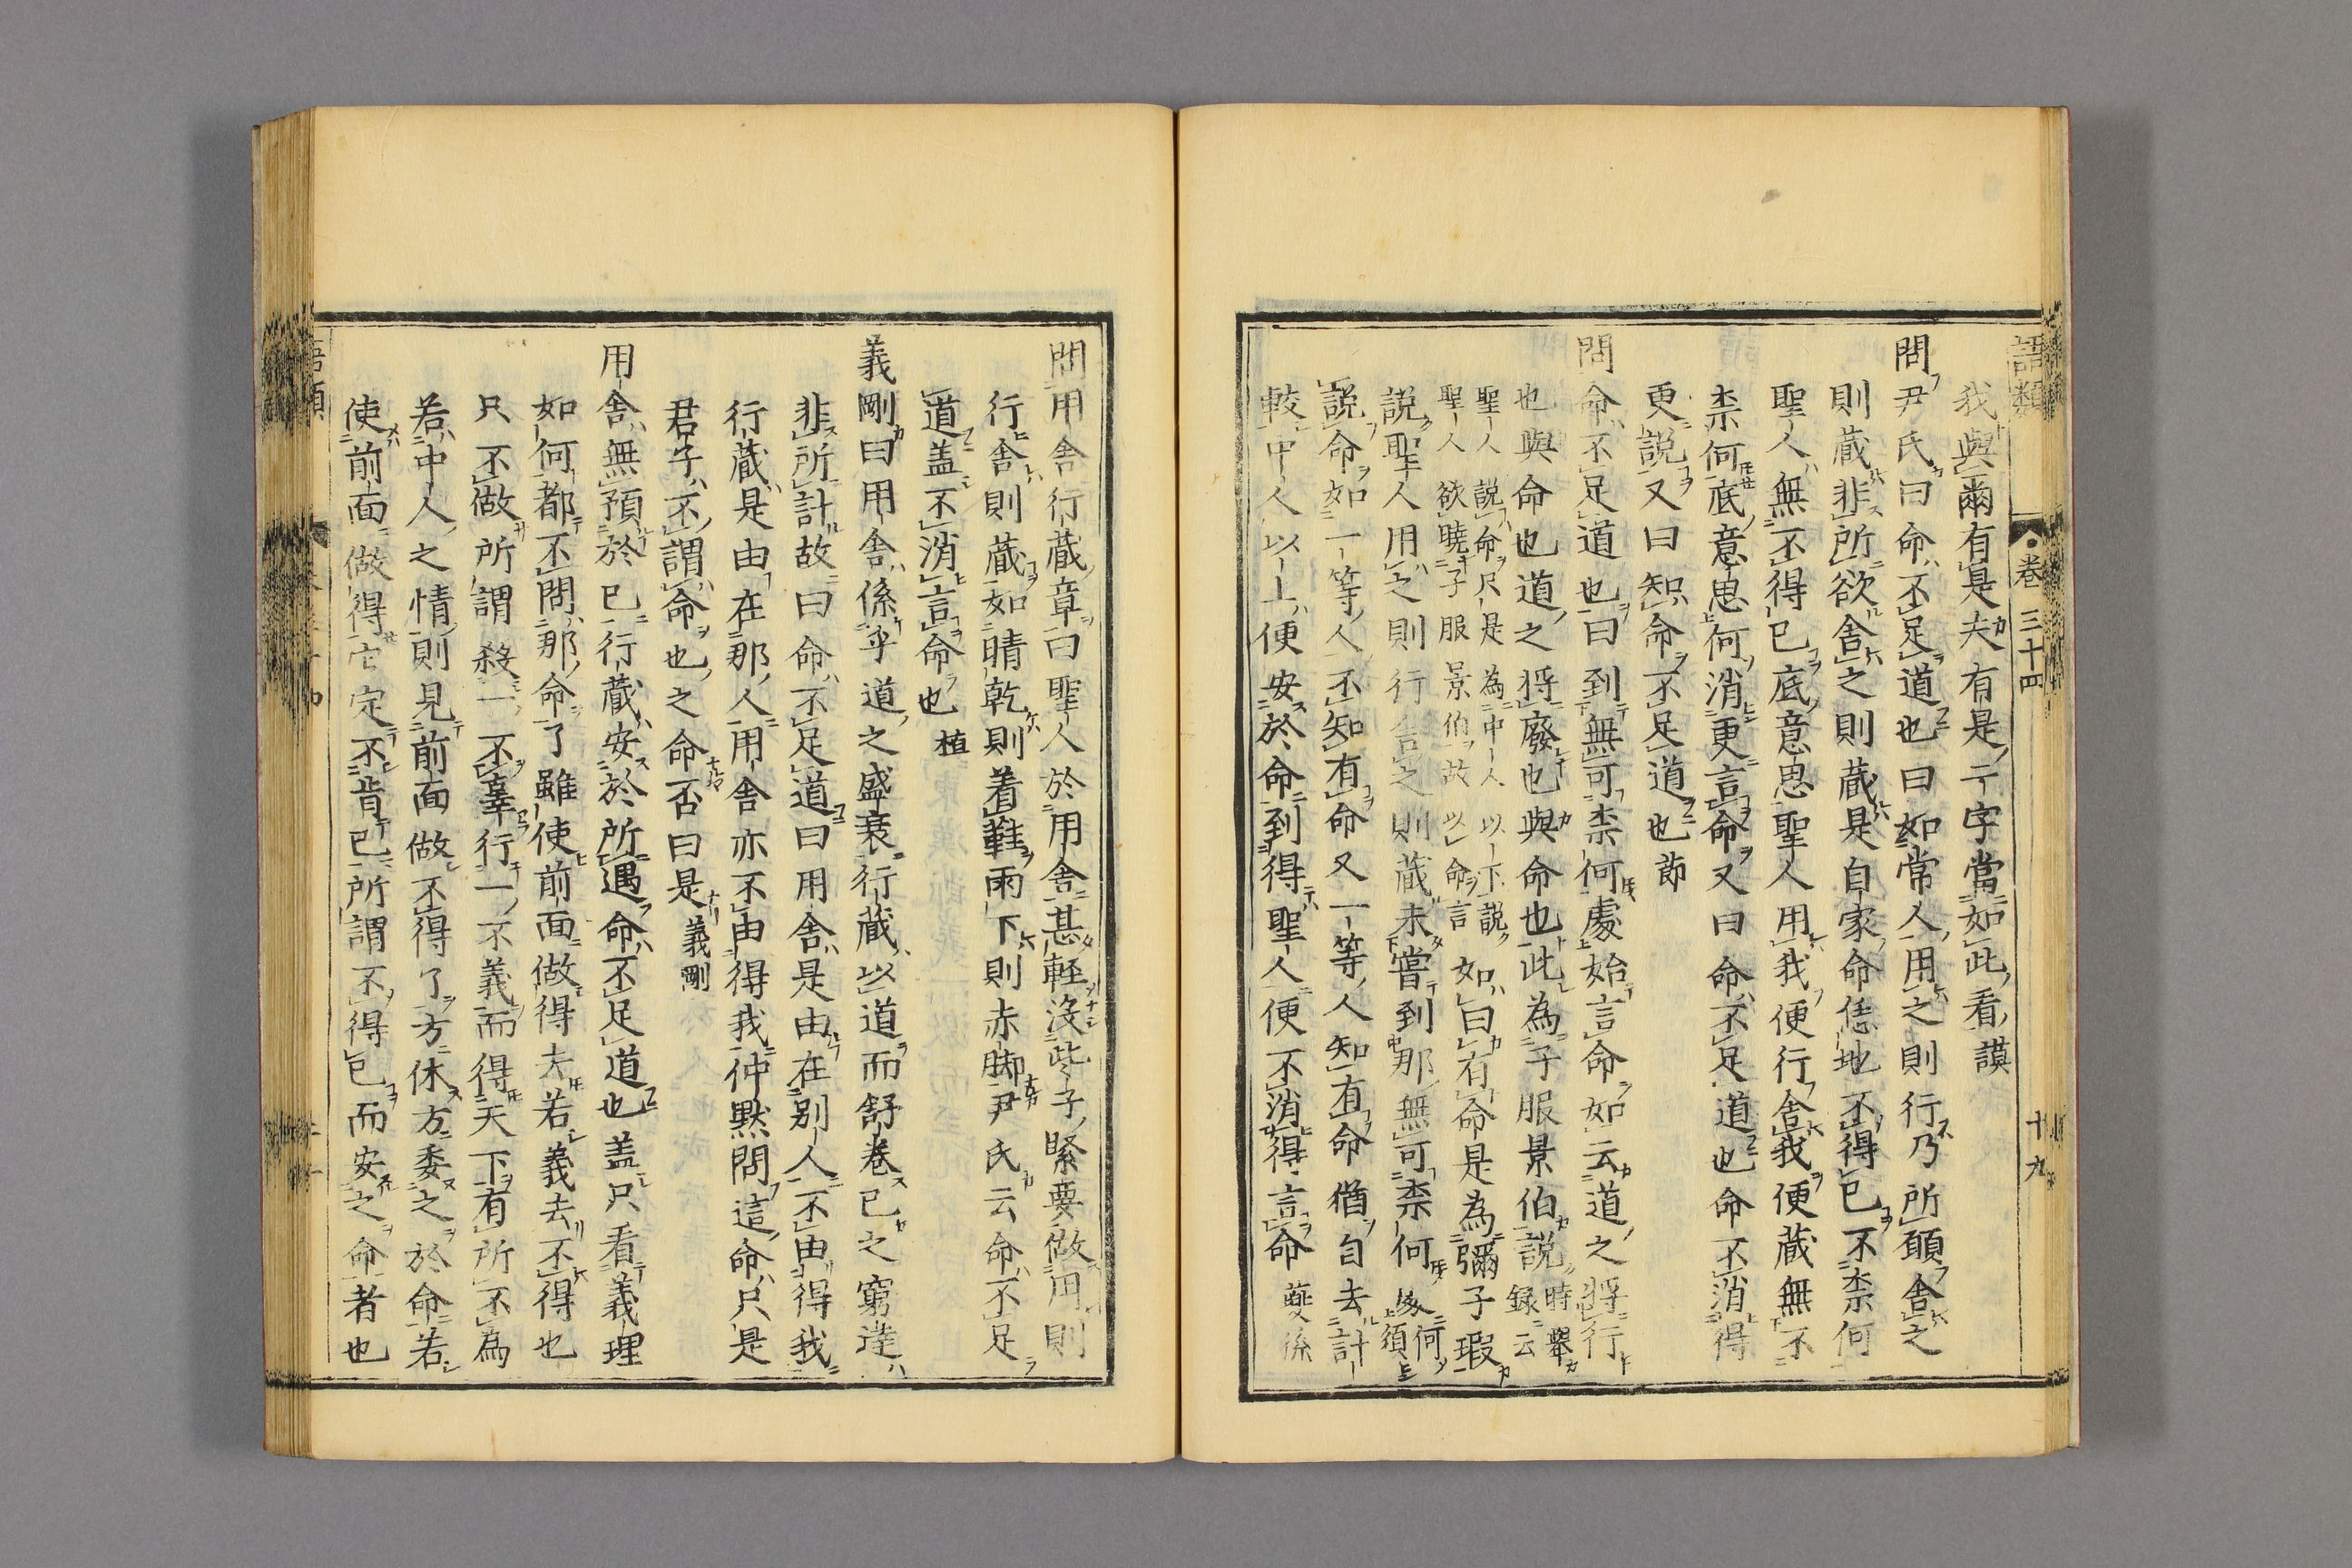 語類
卷三十四
十九
我與爾有是夫有是二字當如此看謨
問尹氏曰命不足道也曰如常人用之則行乃所願舍之
則藏非所欲舍之則藏是自家命恁地不得已不柰何
聖人無不得已底意思聖人用我便行舍我便藏無不
柰何底意思何消更言命又曰命不足道也命不消得
更說又曰知命不足道也節
問命不足道也曰到無可柰何處始言命如云道之將行
也與命也道之將廢也與命也此為子服景伯說時舉錄云
聖人說命只是為中人以下說
聖人欲曉子服景伯故以命言
如曰有命是為彌子瑕
說聖人用之則行舍之則藏未嘗到那無可柰何
何須
說命如一等人不知有命又一等人知有命猶自去計
較中人以上便安於命到得聖人便不消得言命夔孫
問用舍行藏章曰聖人於用舍甚輕沒些子緊要做用則
行舍則藏如晴乾則着鞋雨下則赤脚尹氏云命不足
道盖不消言命也植
義剛曰用舍係乎道之盛衰行藏以道而舒卷已之窮達
非所計故曰命不足道曰用舍是由在別人不由得我
行藏是由在那人用舍亦不由得我仲默問這命只是
君子不謂命也之命否曰是義剛
用舍無預於已行藏安於所遇命不足道也盖只看義理
如何都不問那命了雖使前面做得去若義去不得也
只不做所謂殺一不辜行一不義而得天下有所不為
若中人之情則見前面做不得了方休方委之於命若
使前面做得它定不肯已所謂不得已而安之命者也